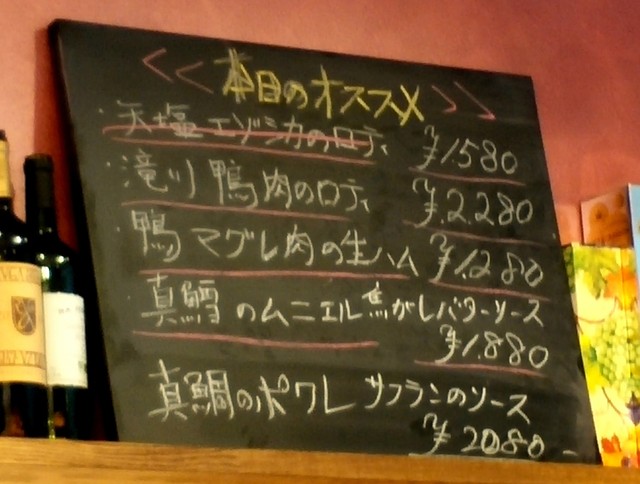 << 本日のオススメ >>
・天塩エゾシカのロティ ¥1,580
・滝川鴨肉のロティ ¥2,280
・鴨マグレ肉の生ハム ¥1,280
・真鱈のムニエル焦がしバターソース
¥1,880
真鯛のポワレ サフランのソース
¥2080-